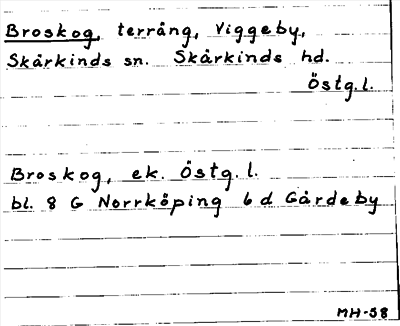 Broskog, terräng, Viggeby,
Skärkinds sn. Skärkinds hd.
Östg.l.
Broskog, ek. Östg.l.
bl. 8 G Norrköping 6 d Gårdeby
MH-58